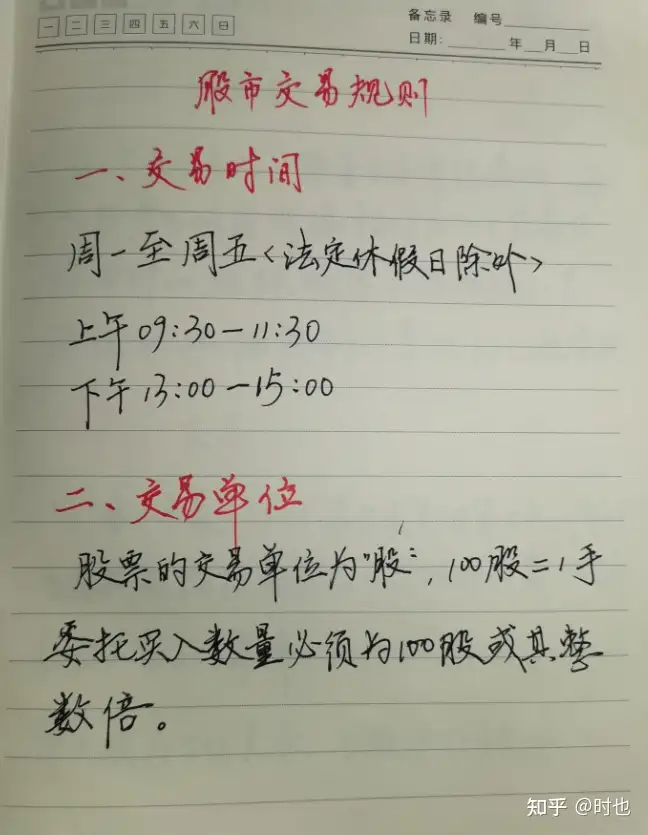 一 二 三 四 五 六 日
备忘录 编号
日期: 年 月 日
股市交易规则
一、交易时间
周一至周五<法定休假日除外>
上午09:30-11:30
下午13:00-15:00
二、交易单位
股票的交易单位为"股",100股=1手
委托买入数量必须为100股或其整
数倍。
知乎 @时也